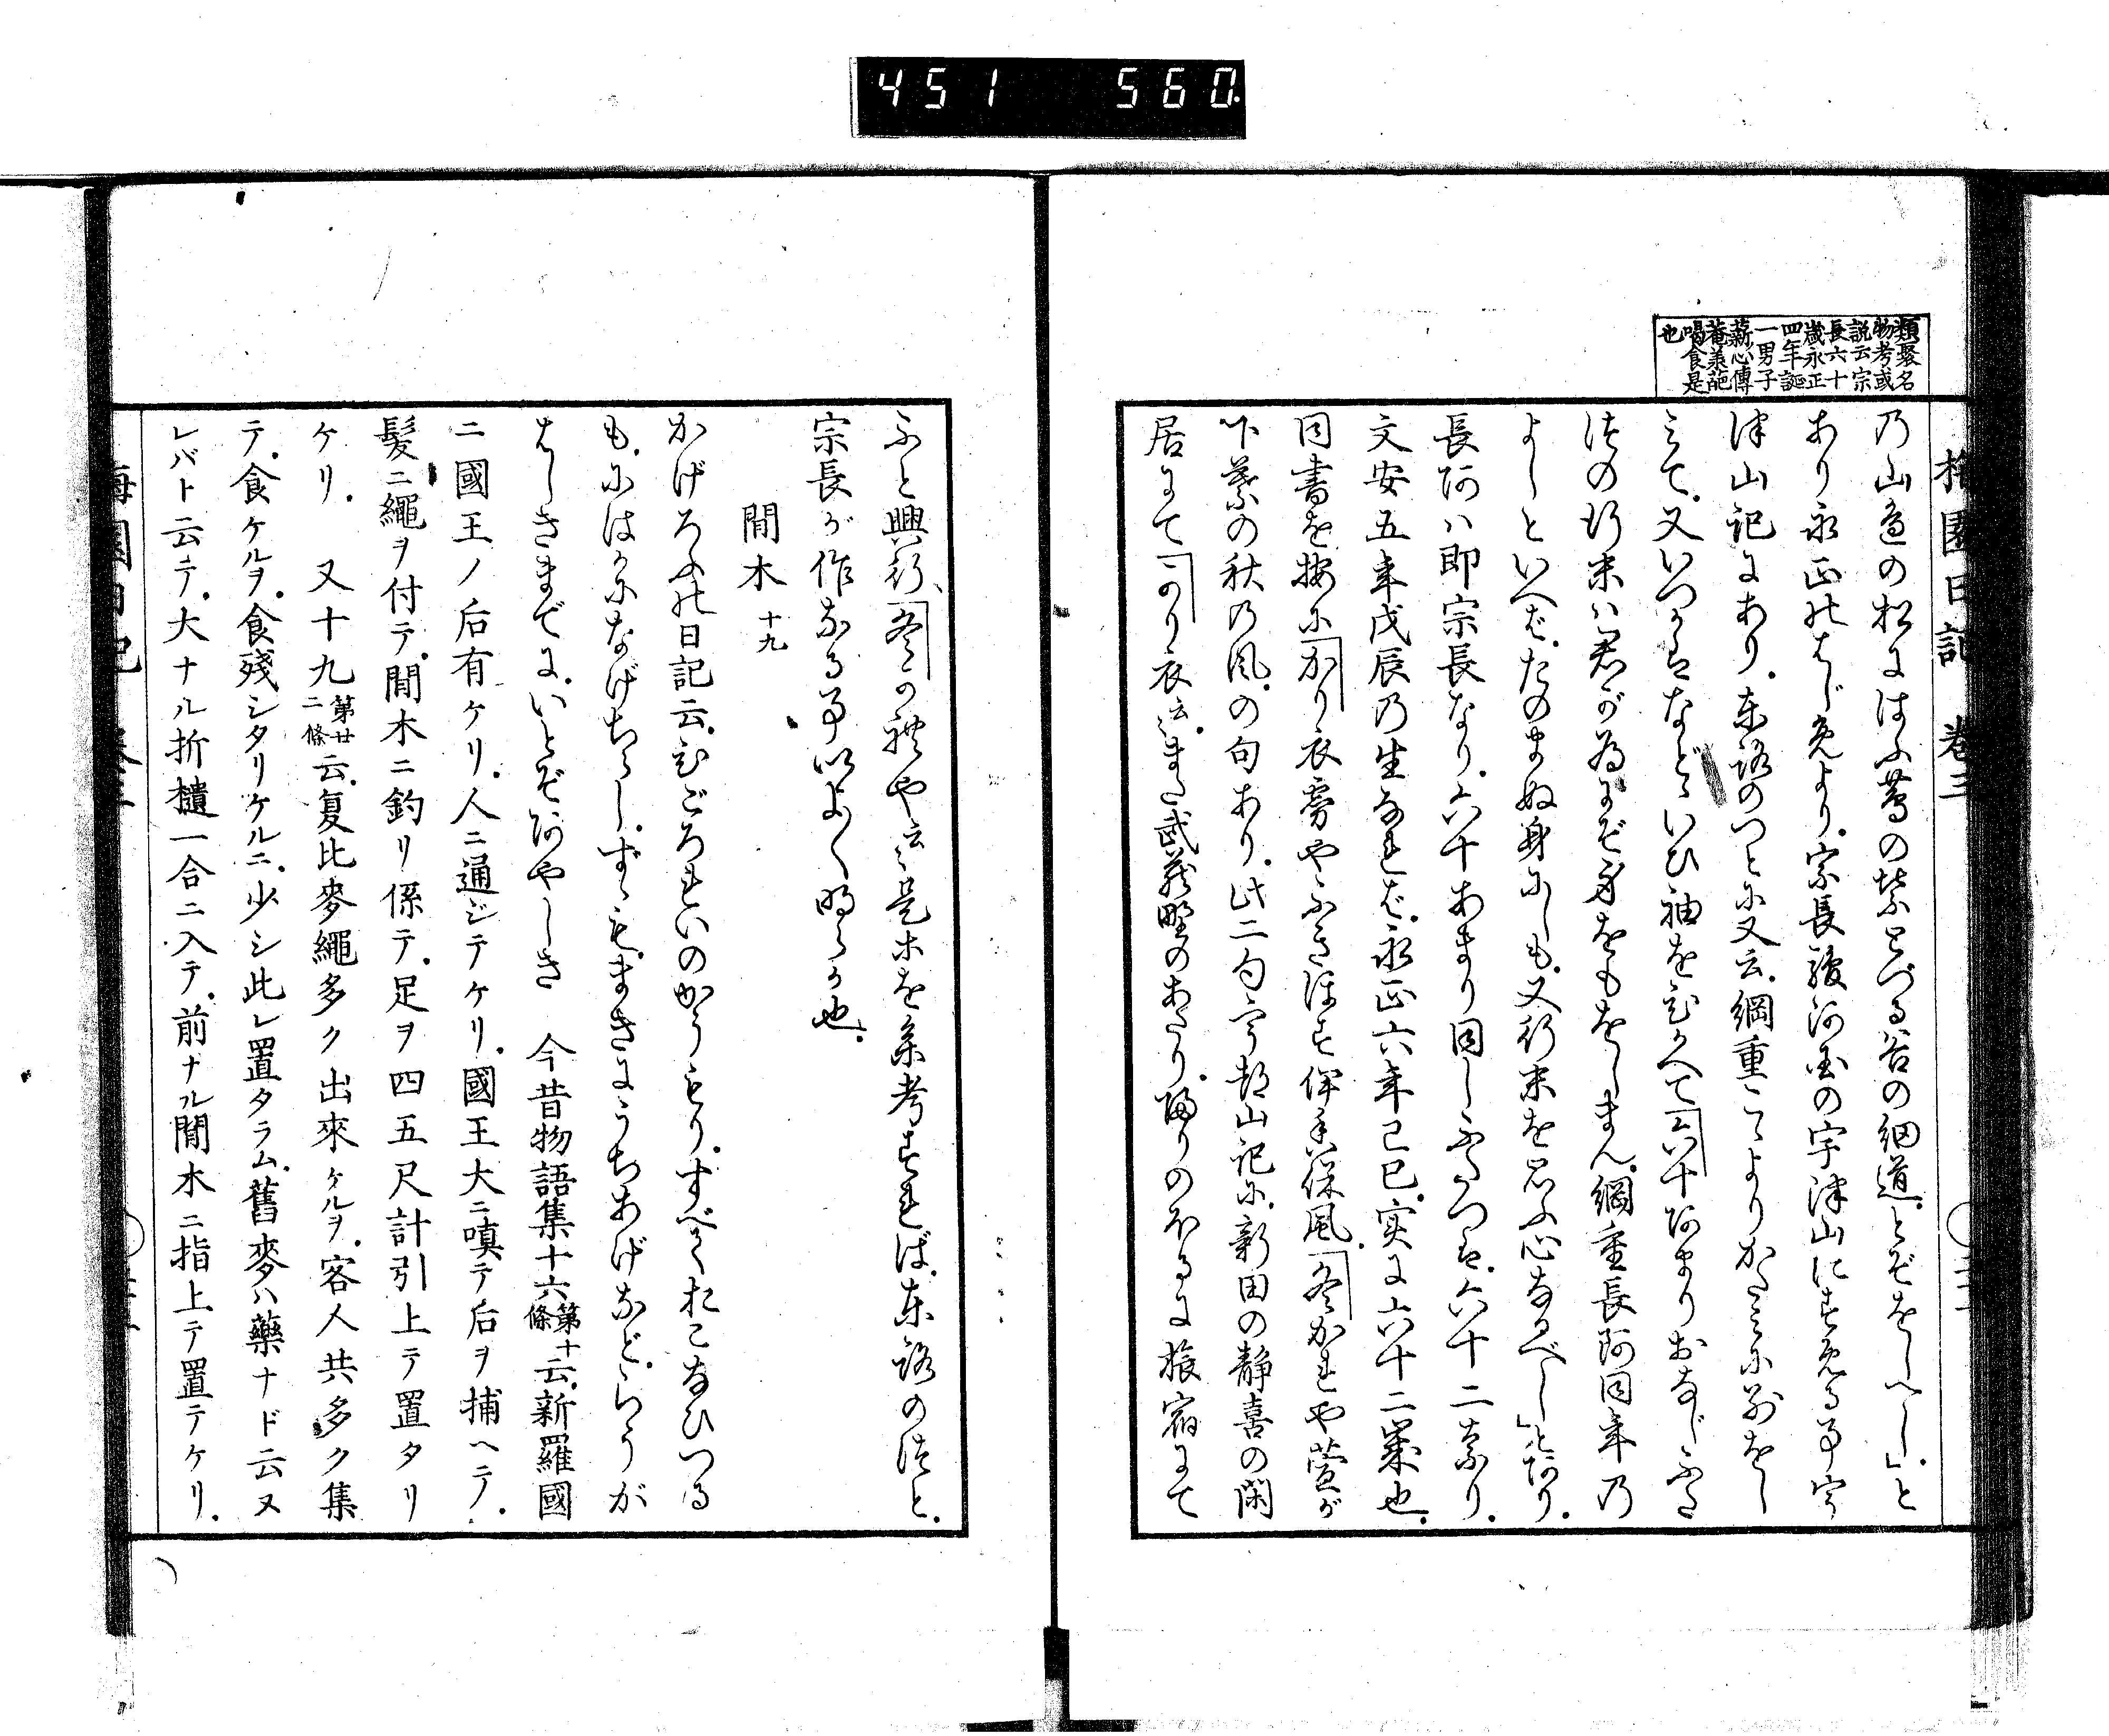 451 560
梅園日記 卷三
類聚名
物考或
説云宗
長六十
歳永正
四年誕
一男子
薪心傳
菴
喝食是
也
乃山邉の松にはふ蔦の紫とづる谷の細道とぞをしへし」と
あり永正のはじめより宗長駿河国の宇津山にすめる事宇
津山記にあり東路のつとに又云綱重こゝよりかたみに別をし
みて又いつかはなどいひ袖をひかへて「六十あまりおなじふた
つの行末は君が為にぞ身をもをしまん綱重長阿同年の
よしといへばたのまぬ身にしも又行末を思ふ心なるべし」とあり
長阿は即宗長なり六十あまり同しふたつは六十二なり
文安五年戊辰乃生なれば永正六年己巳実に六十二歳也
同書を按に「かり衣
葉の秋乃風の句あり此二句宇都山記に新田の静喜の閑
居にて「かり衣云々また武蔵野のあたり帰りのぼるに旅宿にて
ふと興行「冬の や云々是等を参考すれば東路の津と
宗長が作なる事いよ〱明らか也
間木 十九
かげろふの日記云ひごろれいのかうもりすべくおこなひつる
もにはかになげちらしずゞもまきにうちあげなどらうが
はしきまでにいとぞあやしき 今昔物語集十六第十條云新羅國
ニ國王ノ后有ケリ人ニ通ジテケリ國王大ニ嗔テ后ヲ捕ヘテ
髪ニ繩ヲ付テ間木ニ釣リ係テ足ヲ四五尺計引上テ置タリ
ケリ 又十九第廿二條云夏比麥繩多ク出來ケルヲ客人共多ク集
テ食ケルヲ食殘シタリケルニ少シ此レ置タラム舊麥ハ藥ナド云ヌ
レバト云テ大ナル折櫃一合ニ入テ前ナル間木ニ指上テ置テケリ
梅園日記 卷三